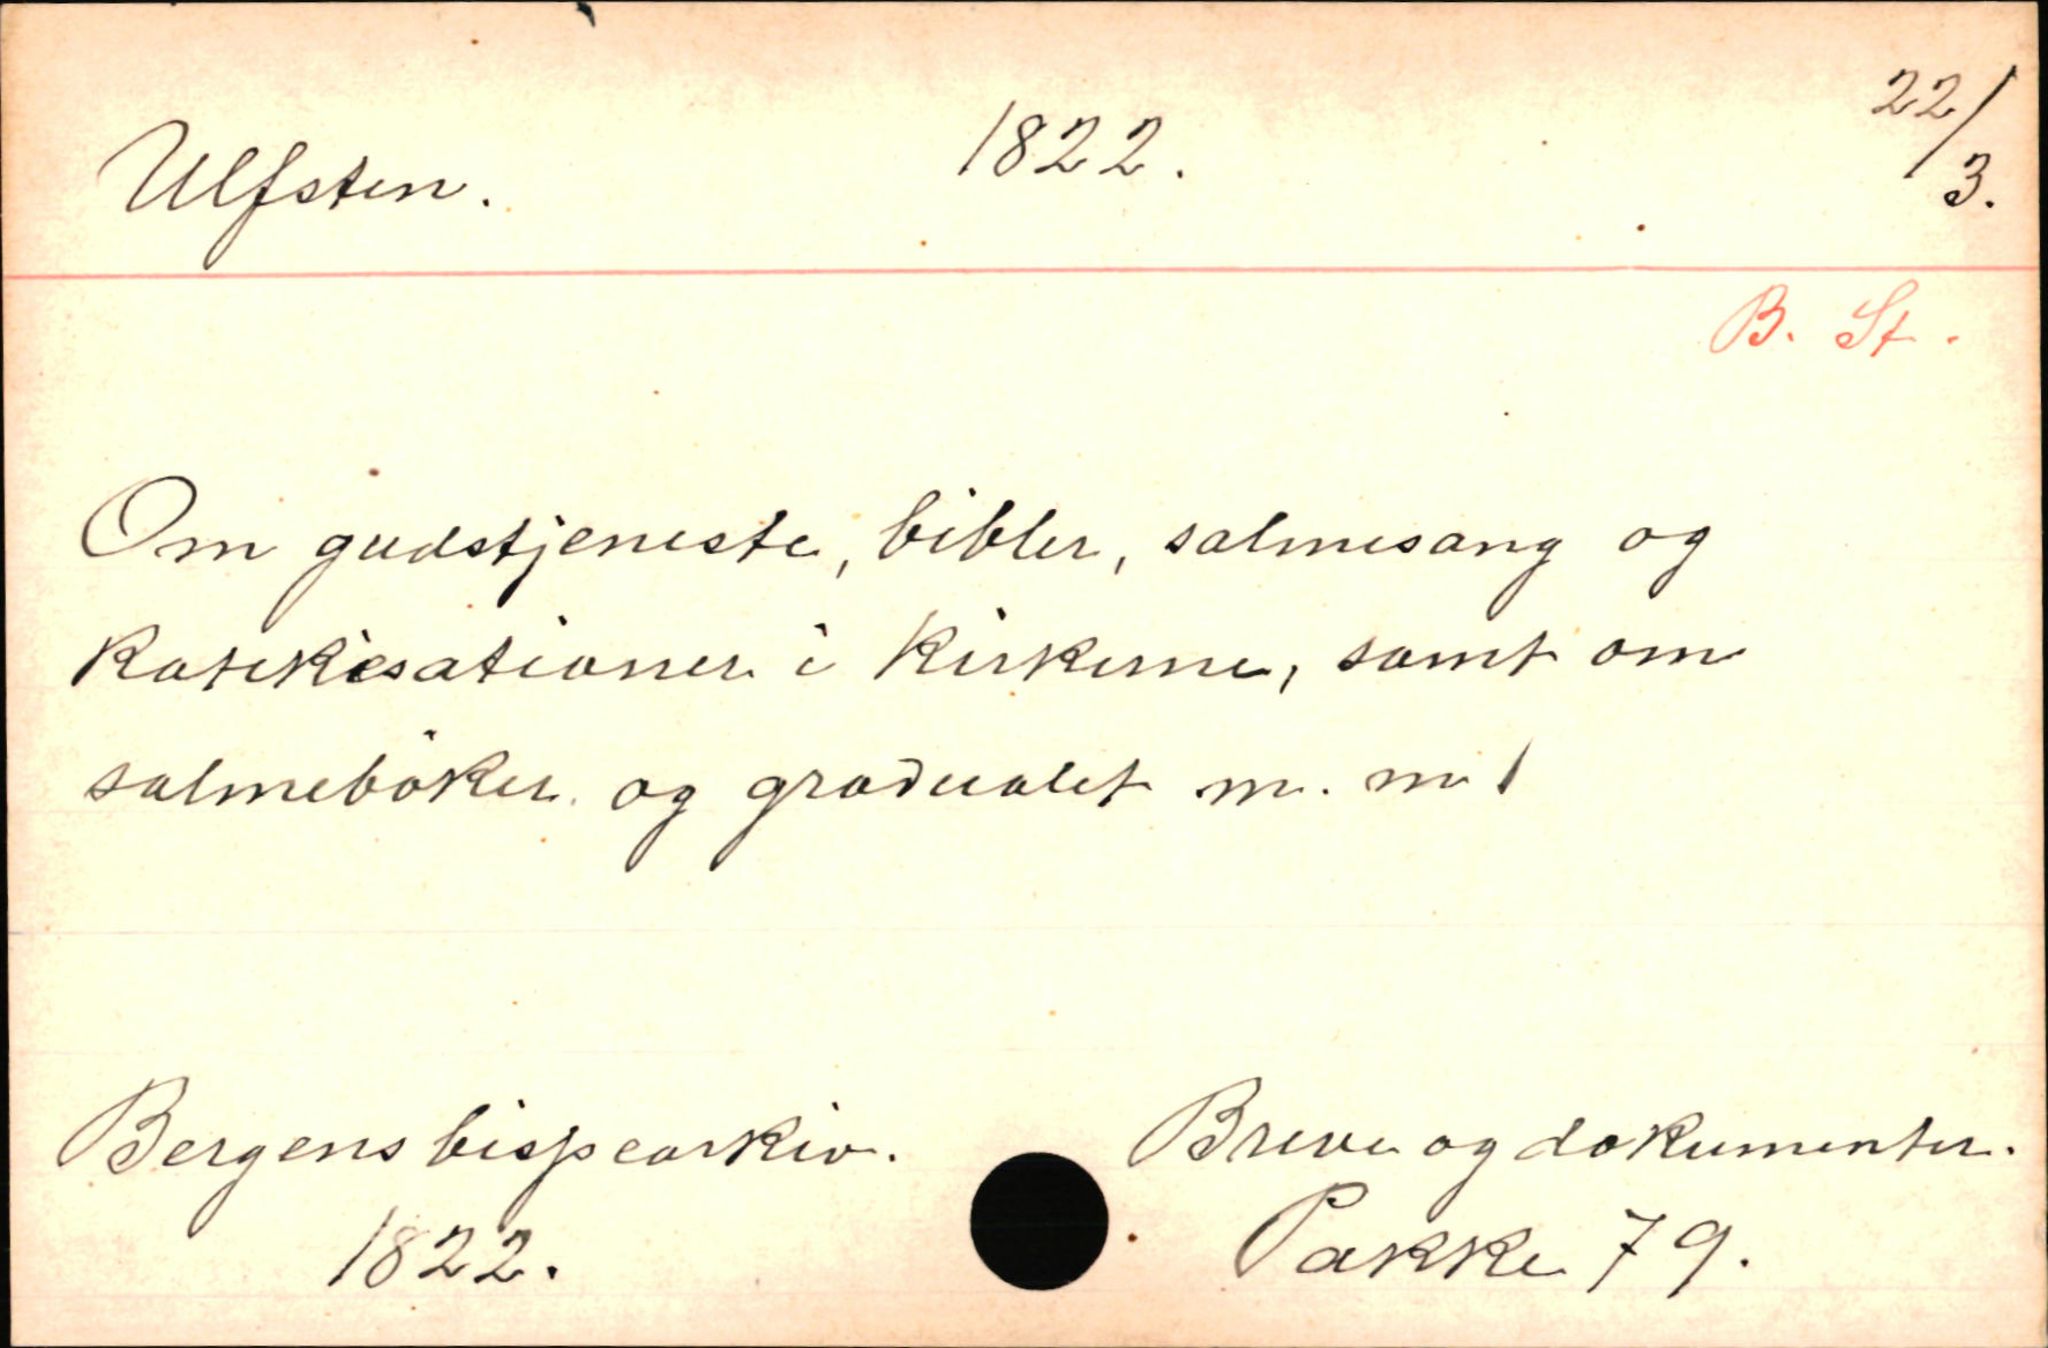 Ulfsten. 1822. 22/3.
B. St.
Om gudstjeneste, bibler, salmesang og
katekisationer i kirkerne, samt om
salmebøker og gradualet m. m.
Bergens bispearkiv. Breve og dokumenter.
1822. Pakke 79.